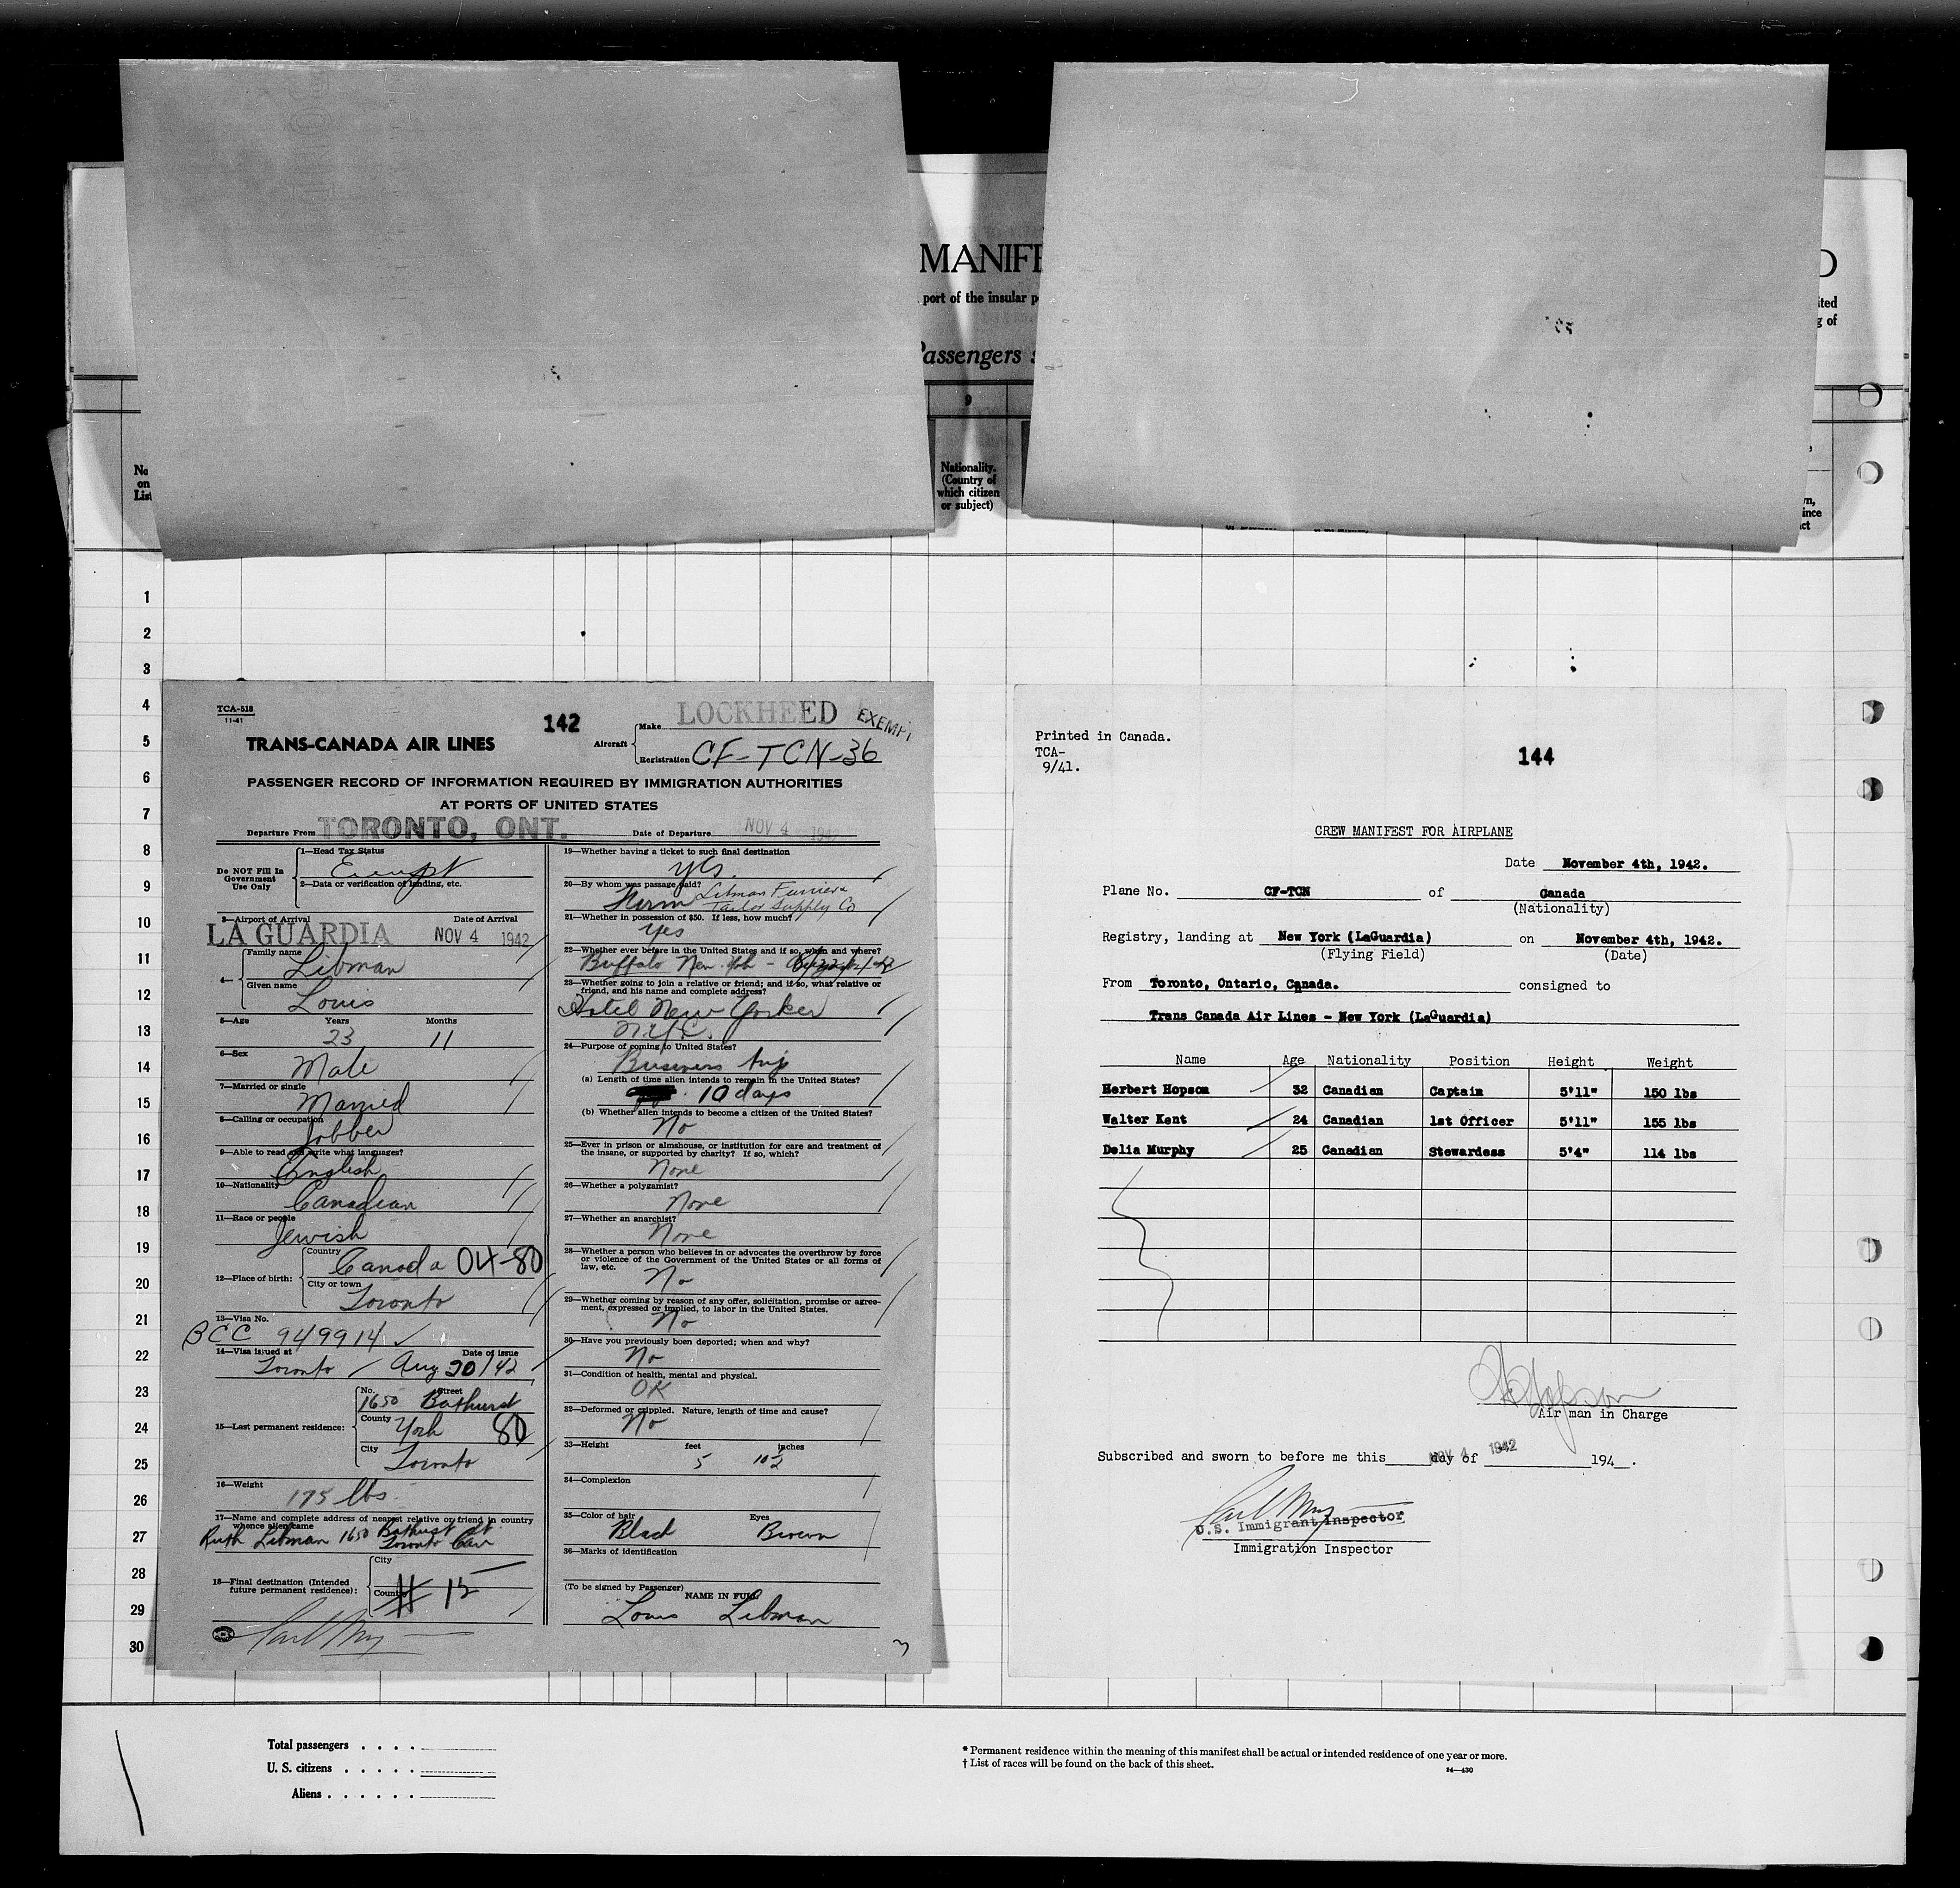 MANIFE
D
port of the insular p
ited
g of
Passengers s
9
No
on
List
Nationality.
(Country of
which citizen
or subject)
wn,
ince
ct
1
2
3
4
5
6
7
8
9
10
11
12
13
14
15
16
17
18
19
20
21
22
23
24
25
26
27
28
29
30
TCA-518
11-41
142
Aircraft
Make LOCKHEED EXEMPT
TRANS-CANADA AIR LINES
Registration CF-TCN-36
PASSENGER RECORD OF INFORMATION REQUIRED BY IMMIGRATION AUTHORITIES
AT PORTS OF UNITED STATES
Departure From TORONTO, ONT. Date of Departure NOV 4 1942
Do NOT Fill In
Government
Use Only
1—Head Tax Status
Exempt
2—Data or verification of landing, etc.
3—Airport of Arrival Date of Arrival
LA GUARDIA NOV 4 1942
4—
Family name
Libman
Given name
Louis
5—Age Years Months
23 11
6—Sex
Male
7—Married or single
Married
8—Calling or occupation
Jobber
9—Able to read and write what languages?
English
10—Nationality
Canadian
11—Race or people
Jewish
12—Place of birth:
Country
Canada 04-80
City or town
Toronto
13—Visa No.
BCC 949914 ✓
14—Visa issued at Date of issue
Toronto / Aug 20/42
15—Last permanent residence:
No. Street
1650 Bathurst
County York 80
City
Toronto
16—Weight
175 lbs.
17—Name and complete address of nearest relative or friend in country
whence alien came
Ruth Libman 1650 Bathurst St.
Toronto Can
18—Final destination (Intended
future permanent residence):
City
County
# 15
Carl
19—Whether having a ticket to such final destination
yes.
20—By whom was passage paid?
Firm Libman Furriers
Tailor Supply Co
21—Whether in possession of $50. If less, how much?
yes
22—Whether ever before in the United States and if so, when and where?
Buffalo New York -
23—Whether going to join a relative or friend; and if so, what relative or
friend, and his name and complete address?
Hotel New Yorker
N.Y.C.
24—Purpose of coming to United States?
Business trip
(a) Length of time alien intends to remain in the United States?
10 days
(b) Whether alien intends to become a citizen of the United States?
No
25—Ever in prison or almshouse, or institution for care and treatment of
the insane, or supported by charity? If so, which?
None
26—Whether a polygamist?
None
27—Whether an anarchist?
None
28—Whether a person who believes in or advocates the overthrow by force
or violence of the Government of the United States or all forms of
law, etc.
No
29—Whether coming by reason of any offer, solicitation, promise or agree-
ment, expressed or implied, to labor in the United States.
No
30—Have you previously been deported; when and why?
No
31—Condition of health, mental and physical.
OK
32—Deformed or crippled. Nature, length of time and cause?
No
33—Height feet inches
5 10½
34—Complexion
35—Color of hair Eyes
Black Brown
36—Marks of identification
(To be signed by Passenger)
NAME IN FULL
Louis Libman
3
Printed in Canada.
TCA-
9/41.
144
CREW MANIFEST FOR AIRPLANE
Date November 4th, 1942.
Plane No. CF-TCN of Canada
(Nationality)
Registry, landing at New York (LaGuardia) on November 4th, 1942.
(Flying Field) (Date)
From Toronto, Ontario, Canada. consigned to
Trans Canada Air Lines - New York (LaGuardia)
Name Age Nationality Position Height Weight
Herbert Hopson 32 Canadian Captain 5'11" 150 lbs
Walter Kent 24 Canadian 1st Officer 5'11" 155 lbs
Delia Murphy 25 Canadian Stewardess 5'4" 114 lbs
H Hopson
Air man in Charge
Subscribed and sworn to before me this day of 194 .
NOV 4 1942
Carl
U.S. Immigrant Inspector
Immigration Inspector
Total passengers . . . .
U. S. citizens . . . . .
Aliens . . . . . .
* Permanent residence within the meaning of this manifest shall be actual or intended residence of one year or more.
† List of races will be found on the back of this sheet.
14—430